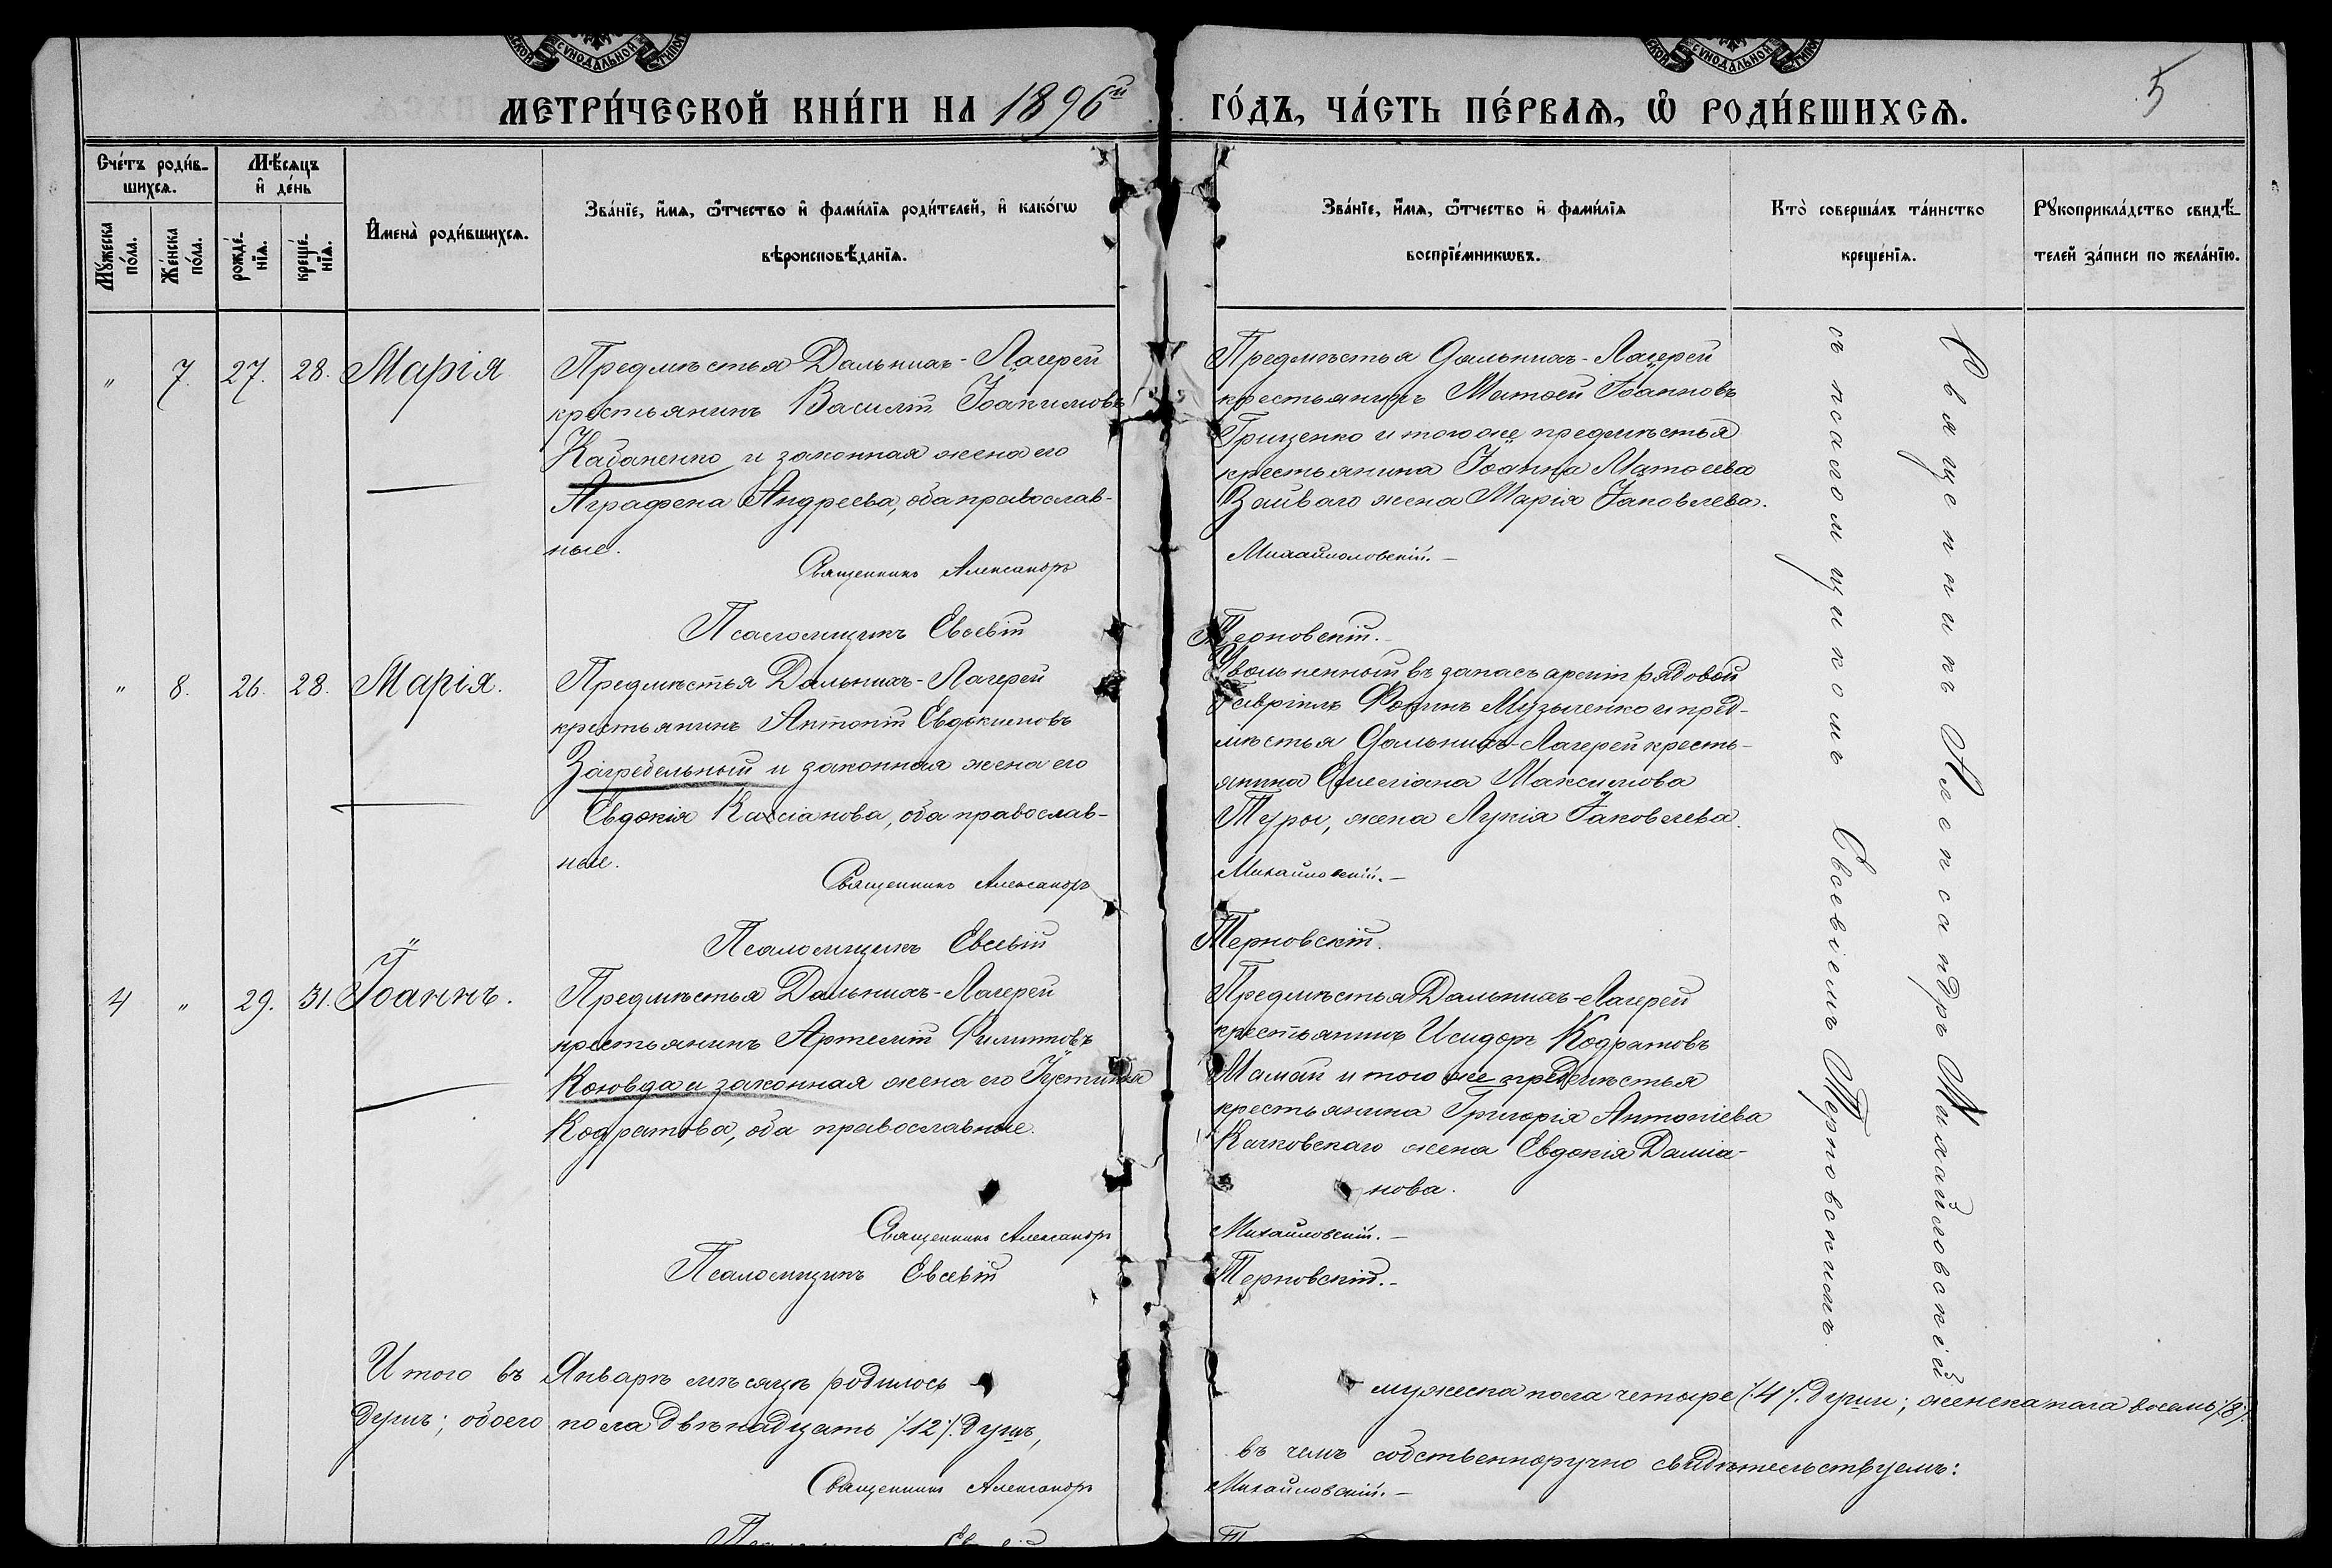 МЕТРИ́ЧЕСКОЙ КНИ́ГИ НА 1896й ГО́ДЪ, ЧА́СТЬ ПЕ́РВАѦ, Ѡ҆ РОДИ́ВШИХСѦ.
5
Сче́тъ роди́в-
шихсѧ.
Мѣ́сѧцъ
и҆ де́нь
Мꙋ́жеска
по́ла.
Же́нска
по́ла.
рожде́-
нїѧ.
креще́-
нїѧ.
И҆мена̀ роди́вшихсѧ.
Зва́нїе, и҆́мѧ, ѻ҆́тчество и҆ фами́лїѧ роди́телей, и҆ како́гѡ
вѣроисповѣ́данїѧ.
Зва́нїе, и҆́мѧ, ѻ҆́тчество и҆ фами́лїѧ
воспрїе́мникѡвъ.
Кто̀ соверша́лъ та́инство
креще́нїѧ.
Рꙋкоприкла́дство свидѣ́-
телей за́писи по жела́нїю.
" 7. 27. 28. Марія
Предмѣстья Дальнихъ-Лагерей
крестьянинъ Василій Іоакимовъ
Кабаненко и законная жена его
Аграфена Андреева, оба православ-
ные.
Священникъ Александръ
Псаломщикъ Евсевій
Предмѣстья Дальнихъ-Лагерей
крестьянинъ Матѳей Іоанновъ
Гриценко и того же предмѣстья
крестьянина Іоанна Матѳеева
жена Марія Іаковлева.
Михайловскій.-
Терновскій.-
" 8. 26. 28. Марія.
Предмѣстья Дальнихъ-Лагерей
крестьянинъ Антоній Евдокимовъ
Загребельный и законная жена его
Евдокія Кассіанова, оба православ-
ные.
Священникъ Александръ
Псаломщикъ Евсевій
Уволенный въ запасъ арміи рядовой
Гавріилъ Фокинъ Музыченко и пред-
мѣстья Дальнихъ-Лагерей кресть-
янина Емеліана Максимова
Туры, жена Лукія Іаковлева.
Михайловскій.-
Терновскій.
4 " 29. 31. Іоаннъ.
Предмѣстья Дальнихъ-Лагерей
крестьянинъ Артемій Филипповъ
Коновда и законная жена его Іустинія
Кодратова, оба православные.
Священникъ Александръ
Псаломщикъ Евсевій
Предмѣстья Дальнихъ-Лагерей
крестьянинъ Исидоръ Кодратовъ
Мамай и того же предмѣстья
крестьянина Григорія Антоніева
Качковскаго жена Евдокія Даміа-
нова.
Михайловскій.-
Терновскій.-
Священникъ Александръ Михайловскій
съ псаломщикомъ Евсевіемъ Терновскимъ.
Итого въ Январѣ мѣсяцѣ родилось мужеска пола четыре /.4/. души; женска пола восемь /.8/.
душъ; обоего пола двѣнадцать /.12/. душъ, въ чемъ собственноручно свидѣтельствуемъ:
Священникъ Александръ Михайловскій.-